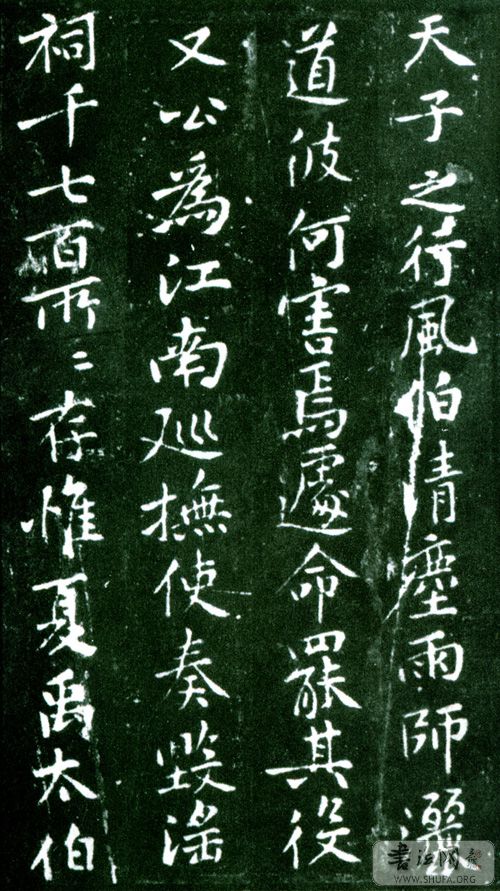 天子之行風伯清塵雨師灑
道彼何害焉遽命罷其役
又公為江南巡撫使奏毀淫
祠千七百所〻存惟夏禹太伯
書法网
WWW.SHUFA.ORG